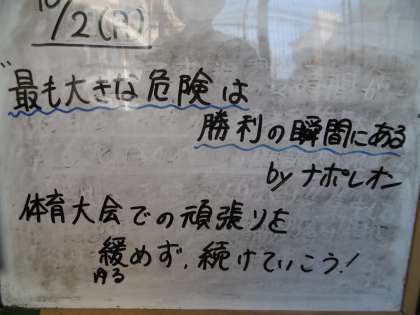 10/2(月)
"最も大きな危険は
勝利の瞬間にある
by ナポレオン
体育大会での頑張りを
緩めず、続けていこう!
ゆる